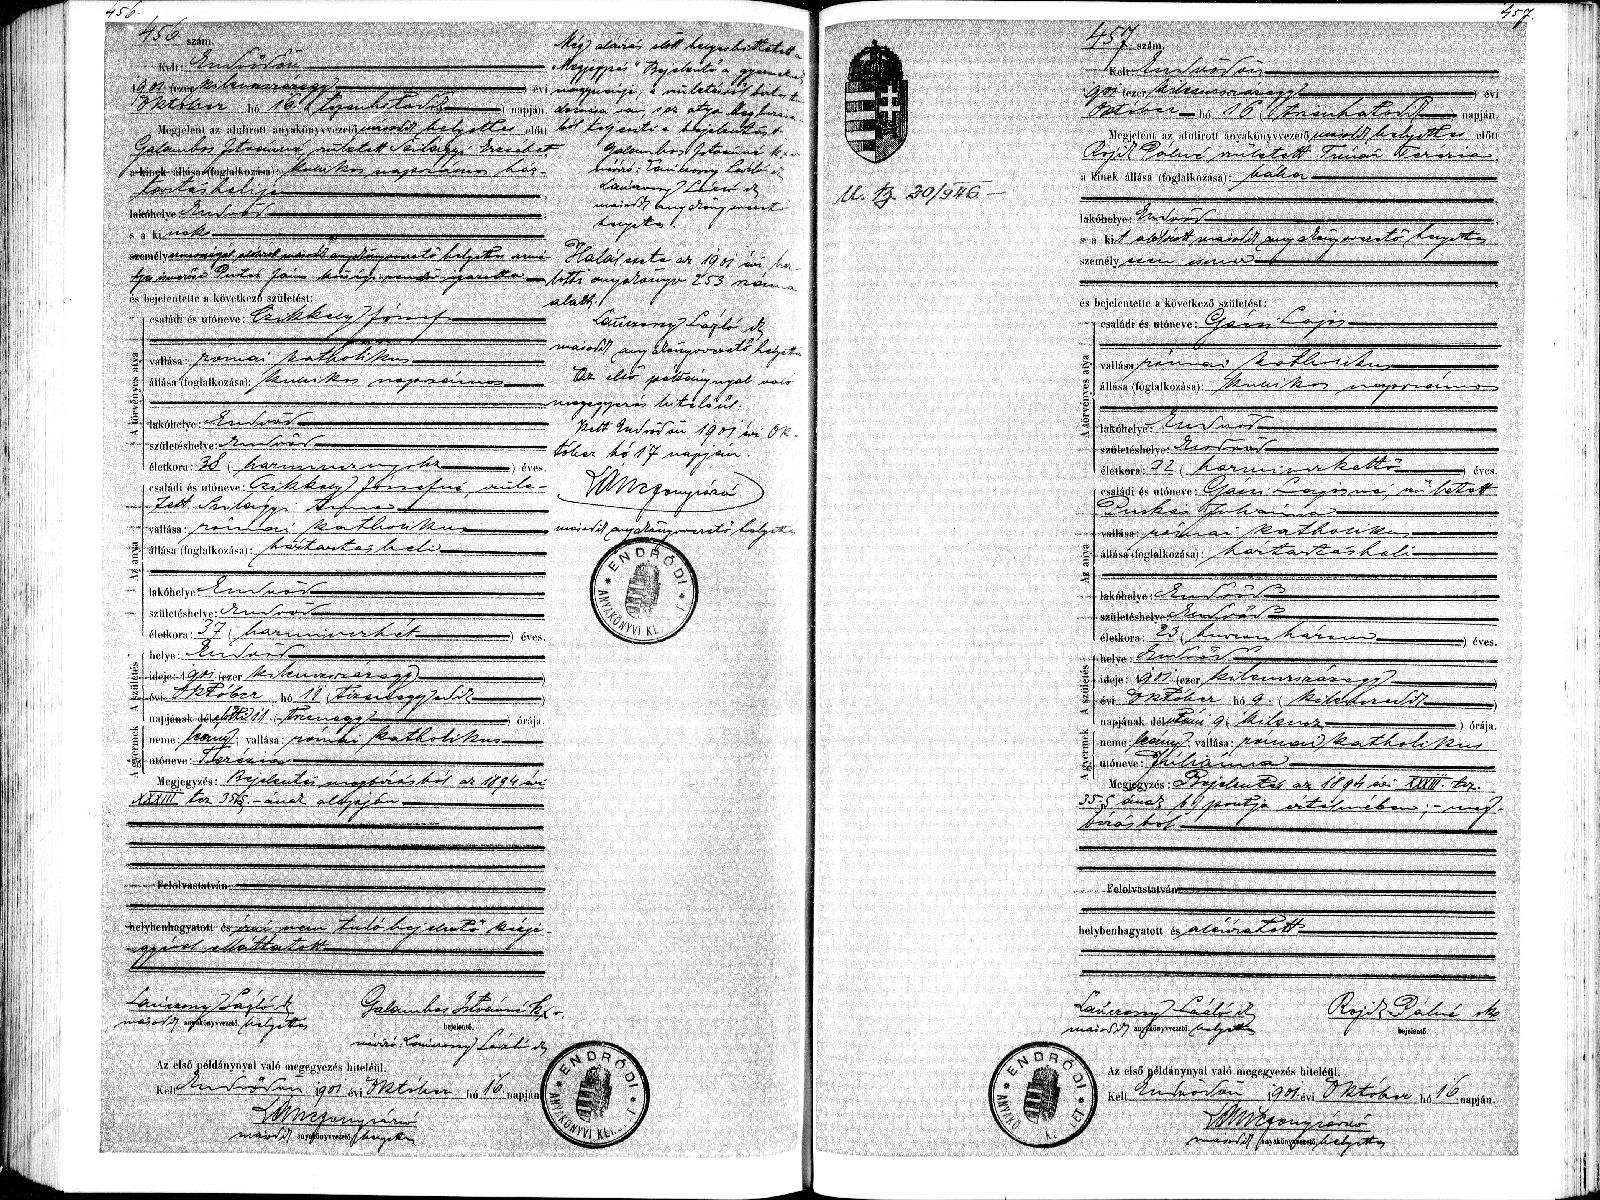 456.
456 szám.
Kelt: Endrődön
1901 (ezer kilencszázegy) évi
Október hó 16 (tizenhatodik) napján.
Megjelent az alulirott anyakönyvvezető második helyettes előtt
Galambos Istvánné született Szilágyi Erzsébet
a kinek állása (foglalkozása): kubikos napszámos ház-
tartásbelije
lakóhelye: Endrőd
s a ki
személy
és bejelentette a következő születést:
A törvényes atya
családi és utóneve: Czikkely József
vallása: római katholikus
állása (foglalkozása): kubikos napszámos
lakóhelye: Endrőd
születéshelye: Endrőd
életkora: 38 (harmincznyolcz) éves.
Az anya
családi és utóneve: Czikkely Józsefné, szüle-
tett Szilágyi
vallása: római katholikus
állása (foglalkozása): háztartásbeli
lakóhelye: Endrőd
születéshelye: Endrőd
életkora: 37 (harminczhét) éves.
A születés
helye: Endrőd
ideje: 1901 (ezer kilencszázegy)
évi Október hó 11 (tizenegyedik)
napjának délelőtti 11 (tizenegy) órája.
A gyermek
neme: leány; vallása: római katholikus
utóneve: Terézia
Megjegyzés: Bejelentés megbízásból az 1894 évi
XXXIII tcz 35 § -ának alapján
Felolvastatván
helybenhagyatott és írni nem tudó bejelentő kézje-
gyével elláttatott
Lánczonyi László dr
második anyakönyvvezető helyettes
Galambos Istvánné
bejelentő.
Az első példánynyal való megegyezés hiteléül.
Kelt Endrődön 1901 évi Október hó 16 napján
második anyakönyvvezető helyettes
Még aláírás előtt helyesbíttetett
"Megjegyzés" Bejelentő a gyermek
Galambos Istvánné
második anyakönyvvezető
helyettes.
Halál esete az 1901 évi ha-
lotti anyakönyv 253 száma
alatt.
Lánczonyi László dr
második anyakönyvvezető helyettes
Az első példánynyal való
megegyezés hiteléül.
Kelt Endrődön 1901 évi Ok-
tóber hó 17 napján.
második anyakönyvvezető helyettes
ENDRŐDI
ANYAKÖNYVI KE
ENDRŐDI
ANYAKÖNYVI KE
457.
U. tz. 30/946
457 szám.
Kelt: Endrődön
1901 (ezer kilencszázegy) évi
Október hó 16 (tizenhatodik) napján.
Megjelent az alulirott anyakönyvvezető második helyettes előtt
Rojik Pálné született Tímár Terézia
a kinek állása (foglalkozása): bába
lakóhelye: Endrőd
s a kit alulírott második anyakönyvvezető helyettes
személyesen ismer
és bejelentette a következő születést:
A törvényes atya
családi és utóneve: Gácsi Lajos
vallása: római katholikus
állása (foglalkozása): kubikos napszámos
lakóhelye: Endrőd
születéshelye: Endrőd
életkora: 32 (harminczkettő) éves.
Az anya
családi és utóneve: Gácsi Lajosné, született
Puskás Juliánna
vallása: római katholikus
állása (foglalkozása): háztartásbeli
lakóhelye: Endrőd
születéshelye: Endrőd
életkora: 23 (huszonhárom) éves.
A születés
helye: Endrőd
ideje: 1901 (ezer kilencszázegy)
évi Október hó 9. (kilenczedik)
napjának délutáni 9 (kilencz) órája.
A gyermek
neme: leány; vallása: római katholikus
utóneve: Juliánna
Megjegyzés: Bejelentés az 1894 évi XXXIII. tcz.
35 § ának b) pontja értelmében; - meg-
bízásból.
Felolvastatván
helybenhagyatott és aláíratott
Lánczonyi László dr
második anyakönyvvezető helyettes
Rojik Pálné
bejelentő.
Az első példánynyal való megegyezés hiteléül.
Kelt Endrődön 1901 évi Október hó 16 napján.
második anyakönyvvezető helyettes
ENDRŐDI